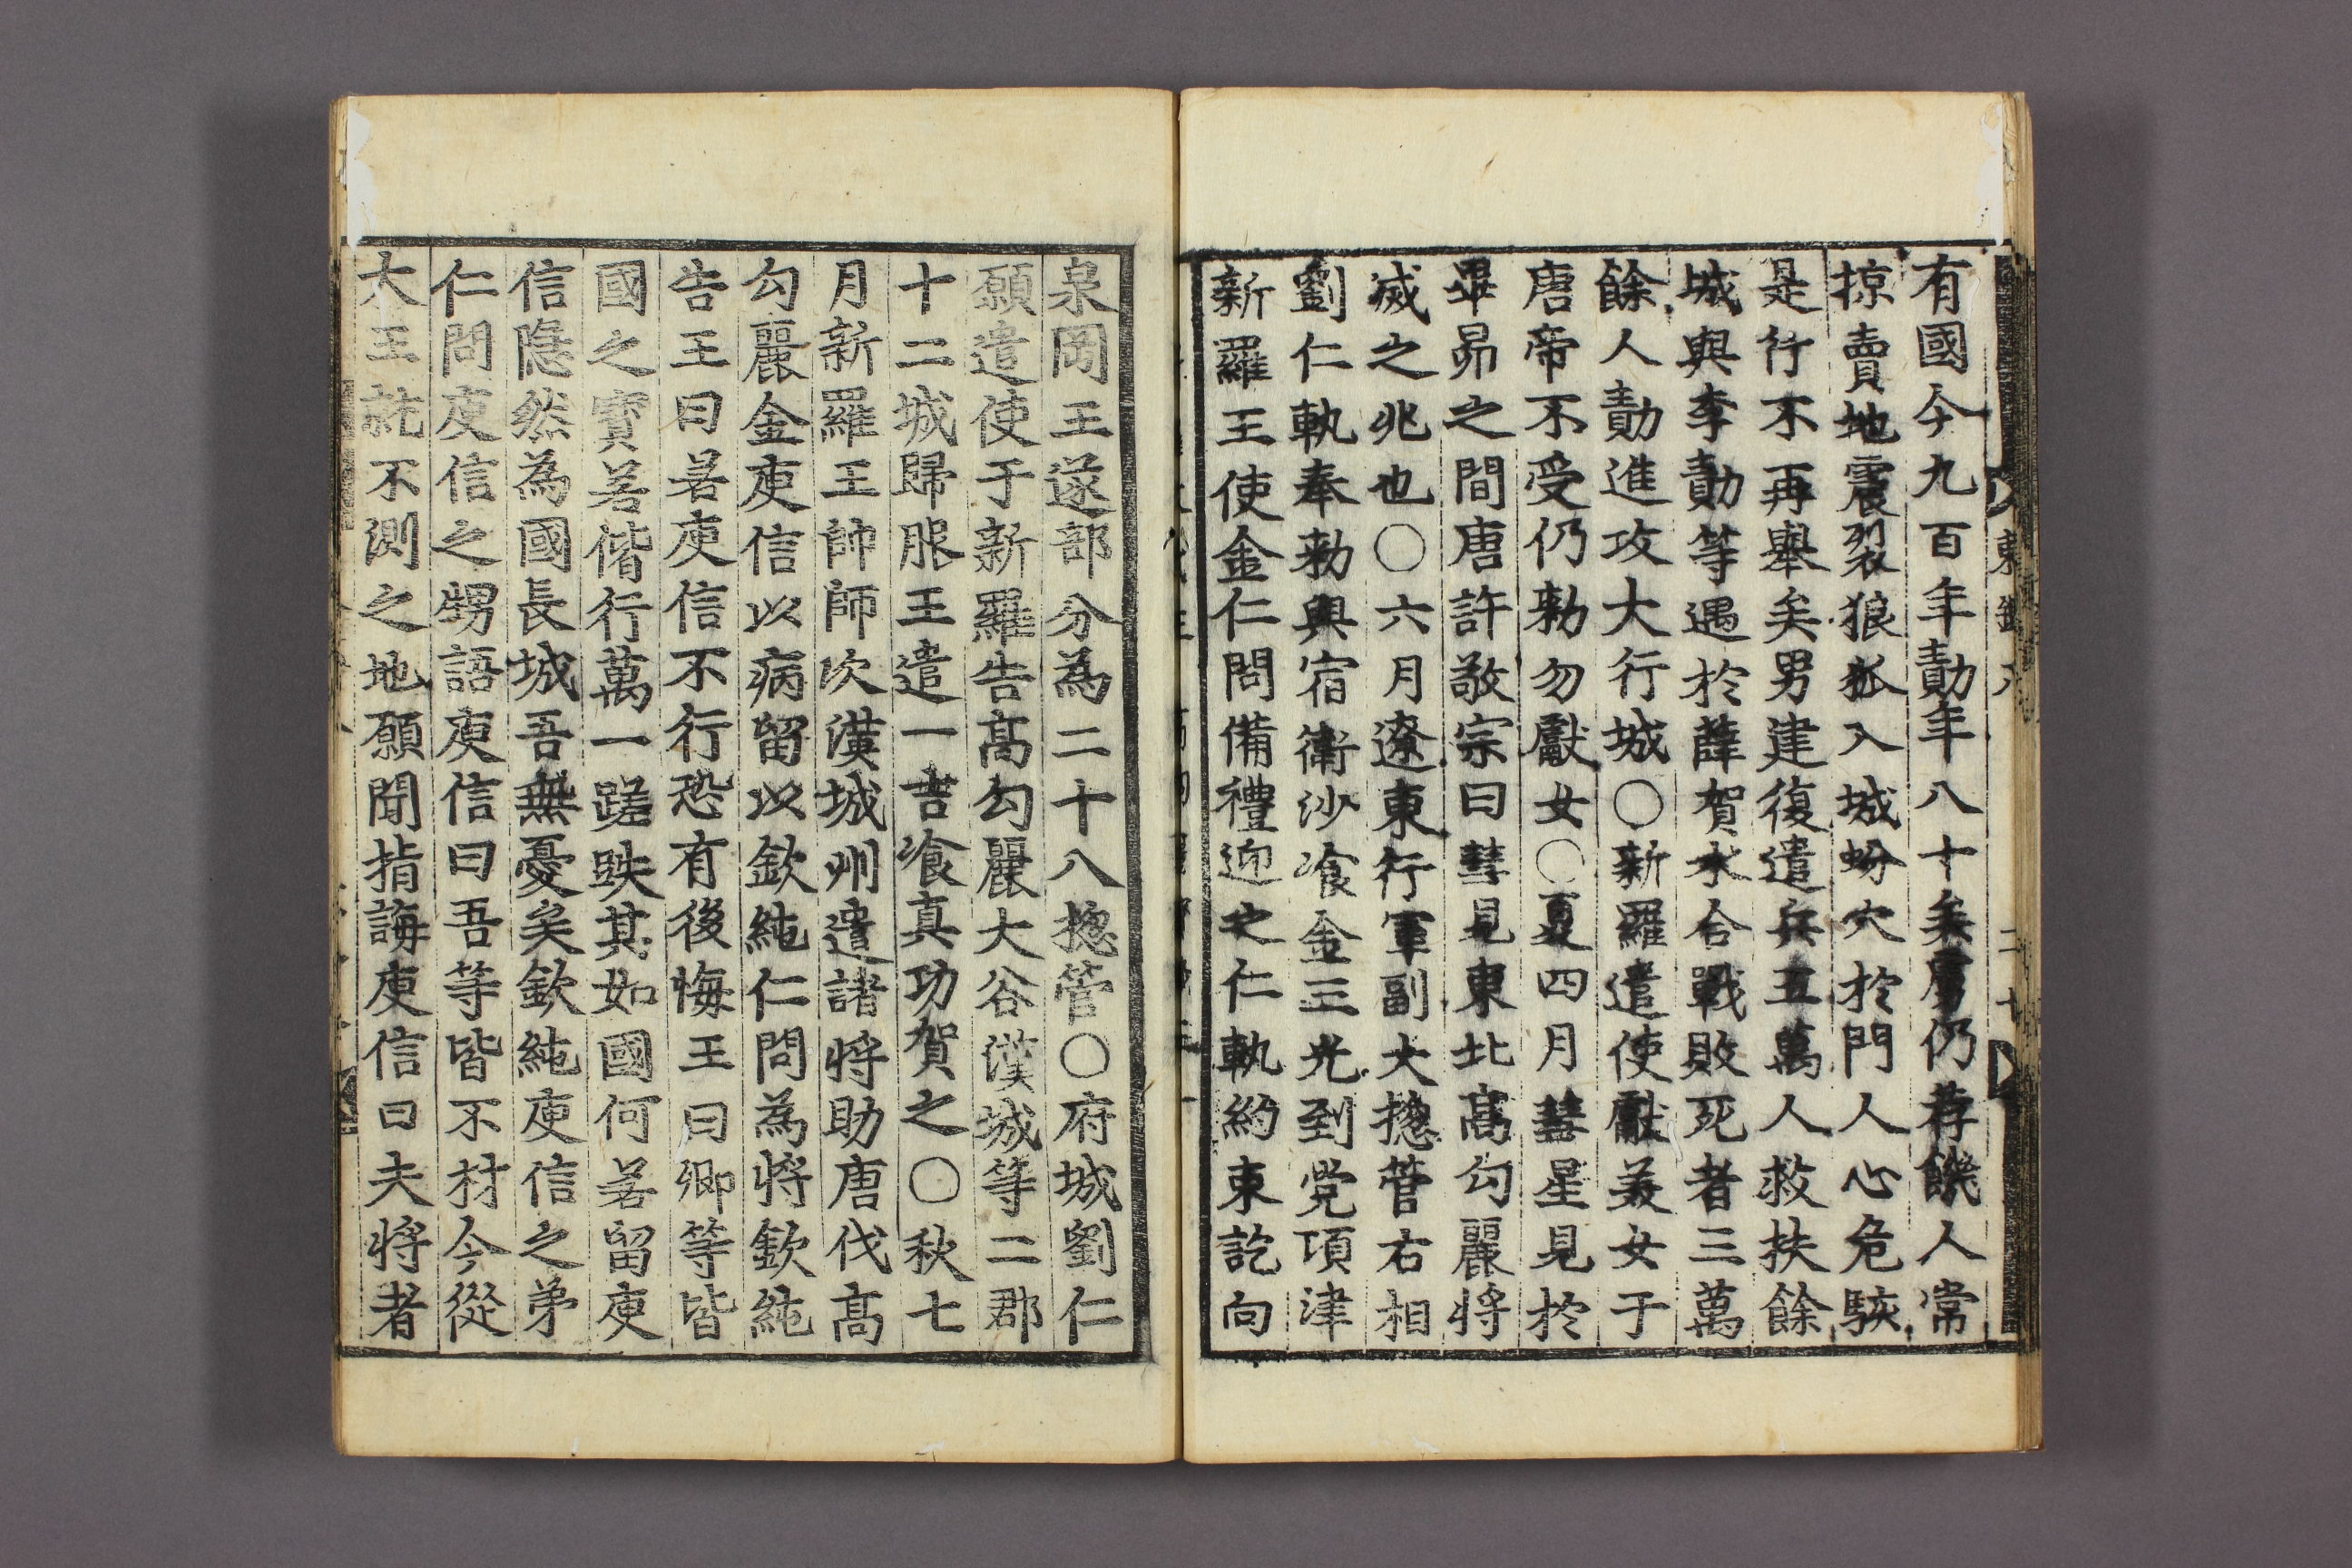 有國今九百年勣年八十矣虜仍荐饑人常
掠賣地震裂狼狐入城蚡穴於門人心危駭
是行不再舉矣男建復遣兵五萬人救扶餘
城與李勣等遇於薛賀水合戰敗死者三萬
餘人勣進攻大行城〇新羅遣使獻美女于
唐帝不受仍勑勿獻女〇夏四月彗星見於
畢昴之間唐許敬宗曰彗見東北高勾麗將
滅之兆也〇六月遼東行軍副大摠管右相
劉仁軌奉勑與宿衛沙飡金三光到党項津
新羅王使金仁問備禮迎之仁軌約束訖向
泉岡王遂部分為二十八摠管〇府城劉仁
願遣使于新羅告高勾麗大谷漢城等二郡
十二城歸服王遣一吉飡真功賀之〇秋七
月新羅王帥師次漢城州遣諸將助唐伐高
勾麗金庾信以病留以欽純仁問為將欽純
告王曰若庾信不行恐有後悔王曰卿等皆
國之寶若偕行萬一蹉跌其如國何若留庾
信隱然為國長城吾無憂矣欽純庾信之弟
仁問庾信之甥語庾信曰吾等皆不材今從
大王就不測之地願聞指誨庾信曰夫將者